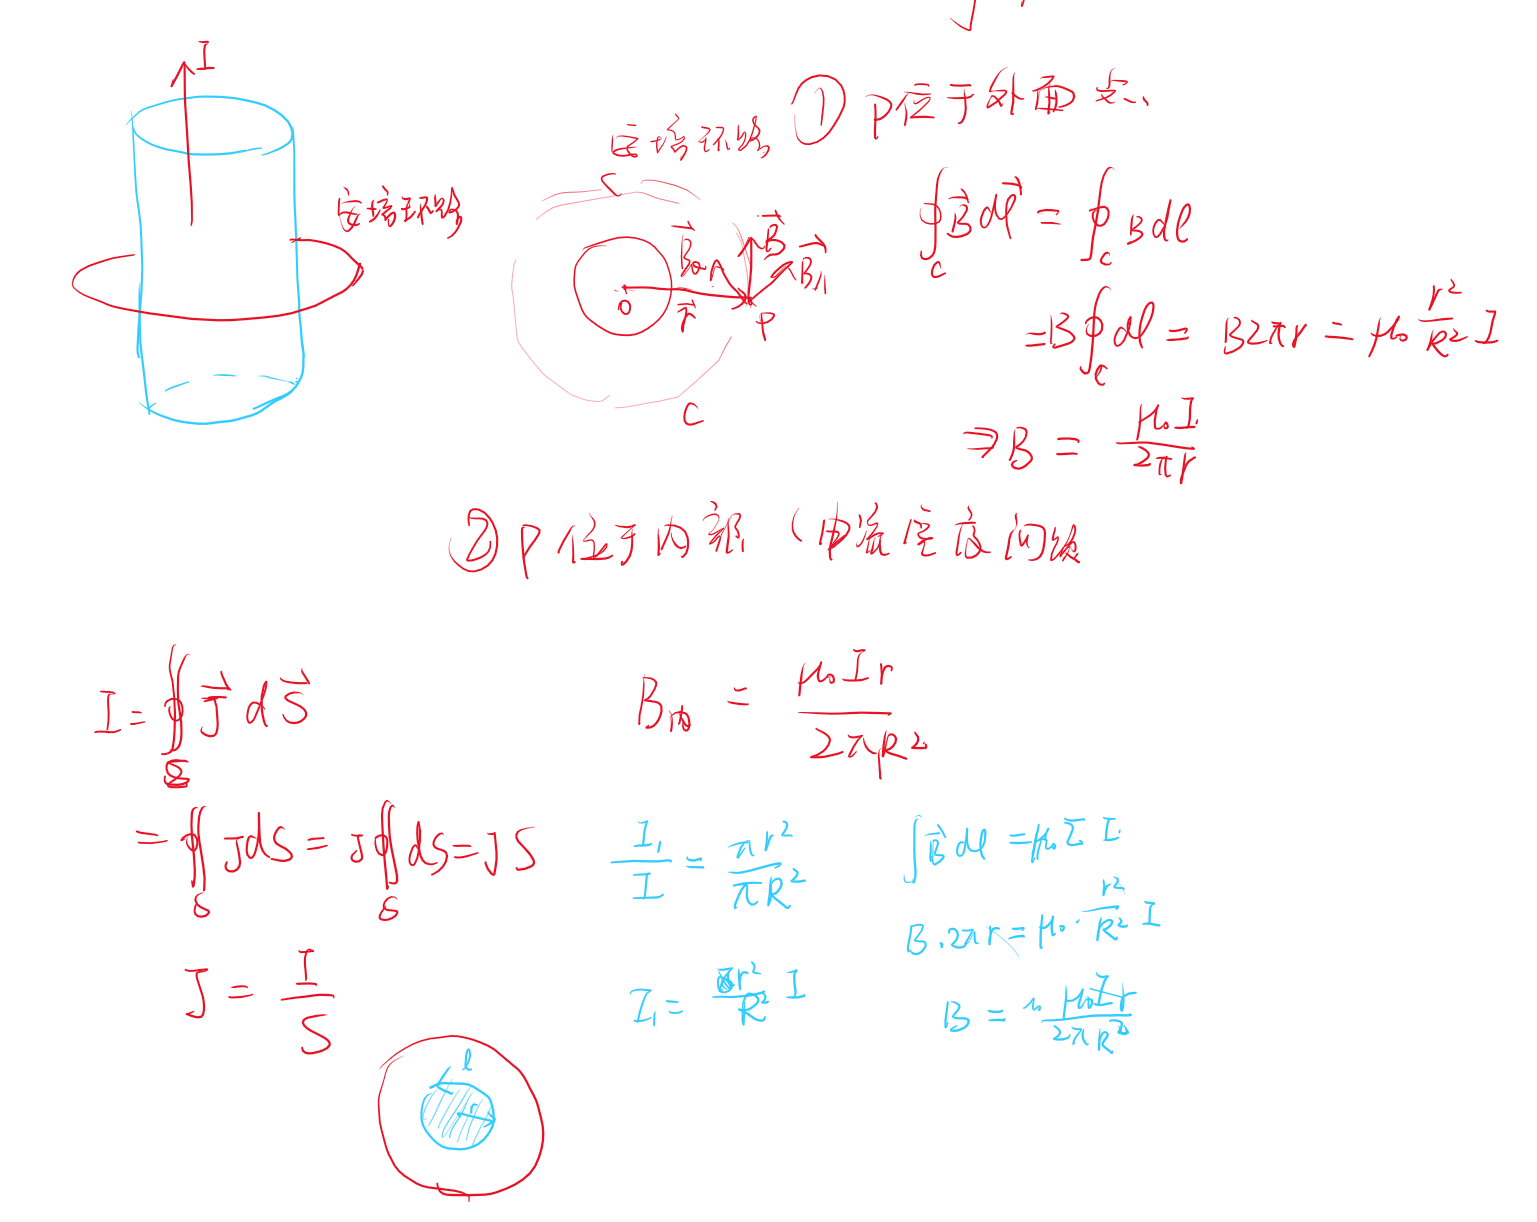 I
安培环路
安培环路
C
B₀
B
B₁
O
r
P
C
① P位于外面
∮_C B⃗ dl⃗ = ∮_C B dl
= B∮_C dl = B2πr = μ₀ r²/R² I
⇒ B = μ₀I / 2πr
② P位于内部 (电流密度问题
I = ∯_S J⃗ dS⃗
= ∯_S JdS = J∯_S dS = JS
J = I / S
B内 = μ₀Ir / 2πR²
I₁ / I = πr² / πR²
I₁ = r² / R² I
∫B⃗ dl = μ₀ Σ I
B·2πr = μ₀· r²/R² I
B = μ₀Ir / 2πR²
l
r